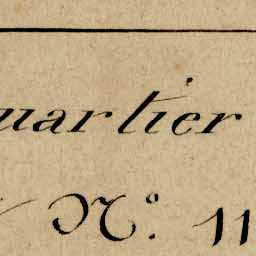 uartier
N.º 11